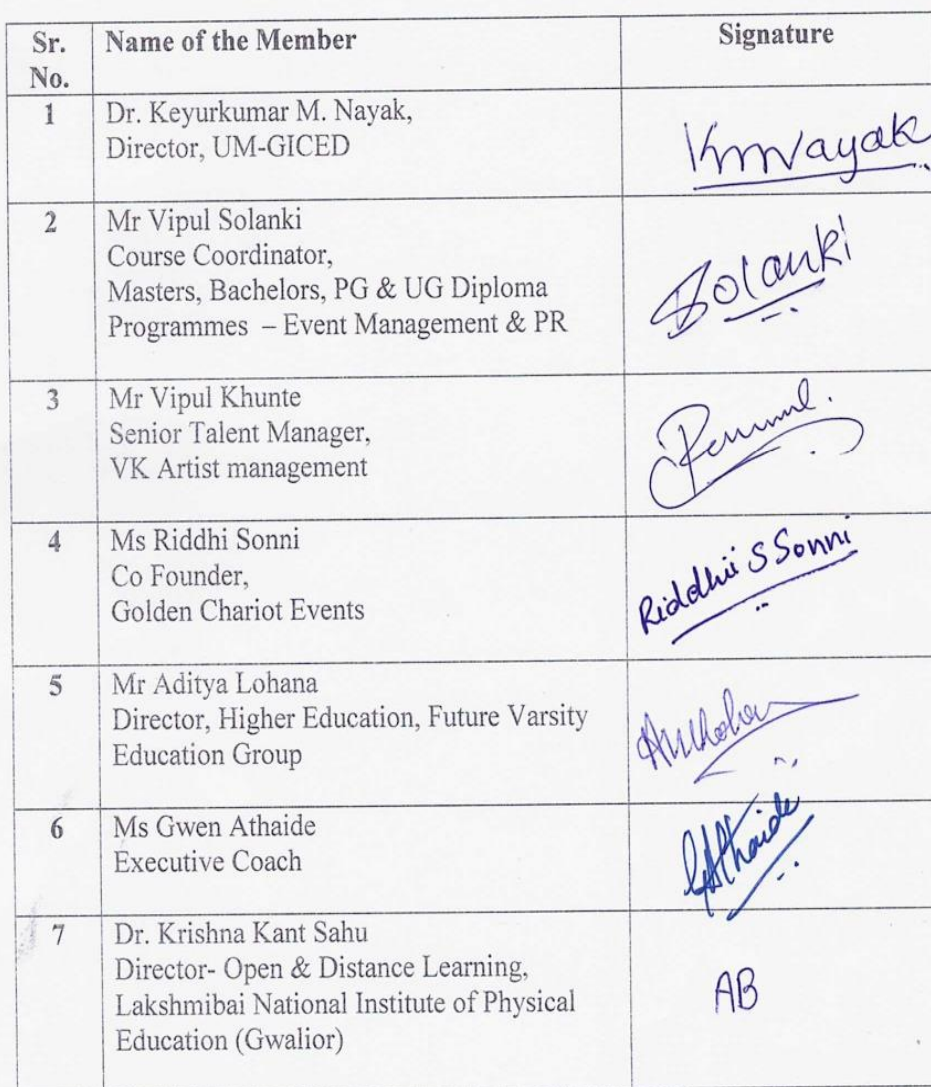 Sr. No. Name of the Member Signature
1 Dr. Keyurkumar M. Nayak,
Director, UM-GICED
KMNayak
2 Mr Vipul Solanki
Course Coordinator,
Masters, Bachelors, PG & UG Diploma
Programmes – Event Management & PR
Solanki
3 Mr Vipul Khunte
Senior Talent Manager,
VK Artist management
4 Ms Riddhi Sonni
Co Founder,
Golden Chariot Events
Riddhii S Sonni
5 Mr Aditya Lohana
Director, Higher Education, Future Varsity
Education Group
6 Ms Gwen Athaide
Executive Coach
GAthaide
7 Dr. Krishna Kant Sahu
Director- Open & Distance Learning,
Lakshmibai National Institute of Physical
Education (Gwalior)
AB